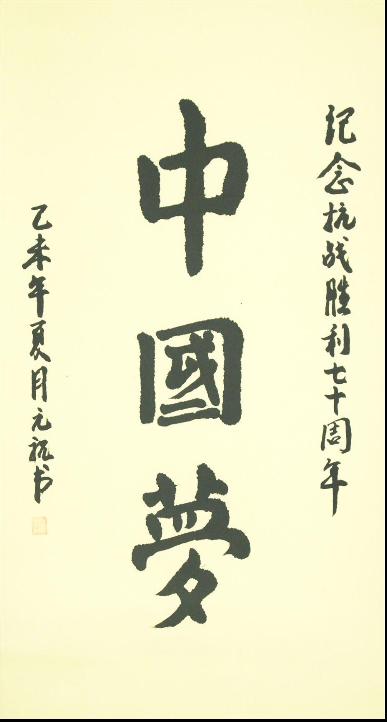 纪念抗战胜利七十周年
中國夢
乙未年夏月元祝书